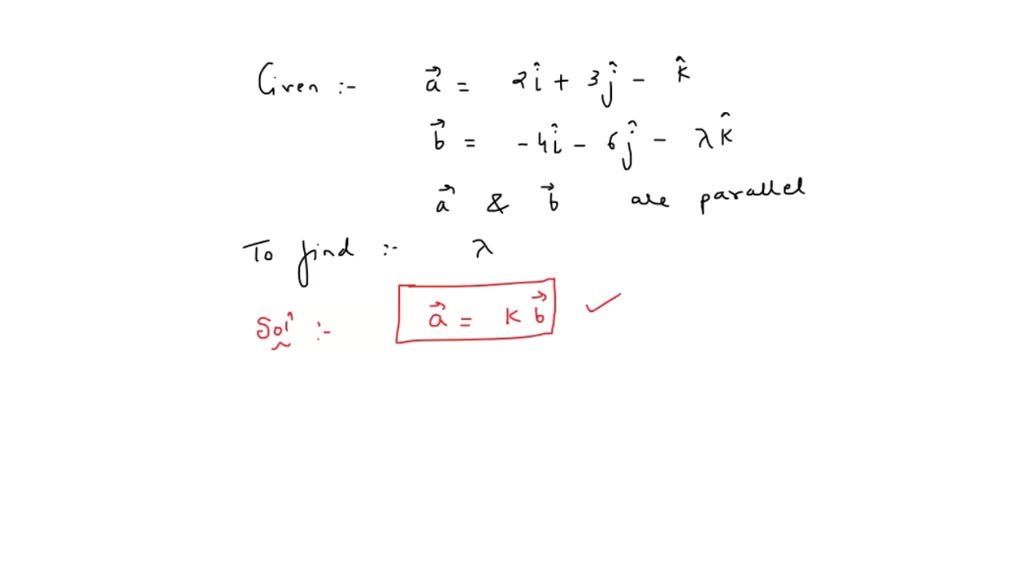 Given :- a⃗ = 2î + 3ĵ - k̂
b⃗ = - 4î - 6ĵ - λk̂
a⃗ & b⃗ are parallel
To find :- λ
Solⁿ :- a⃗ = K b⃗ ✓